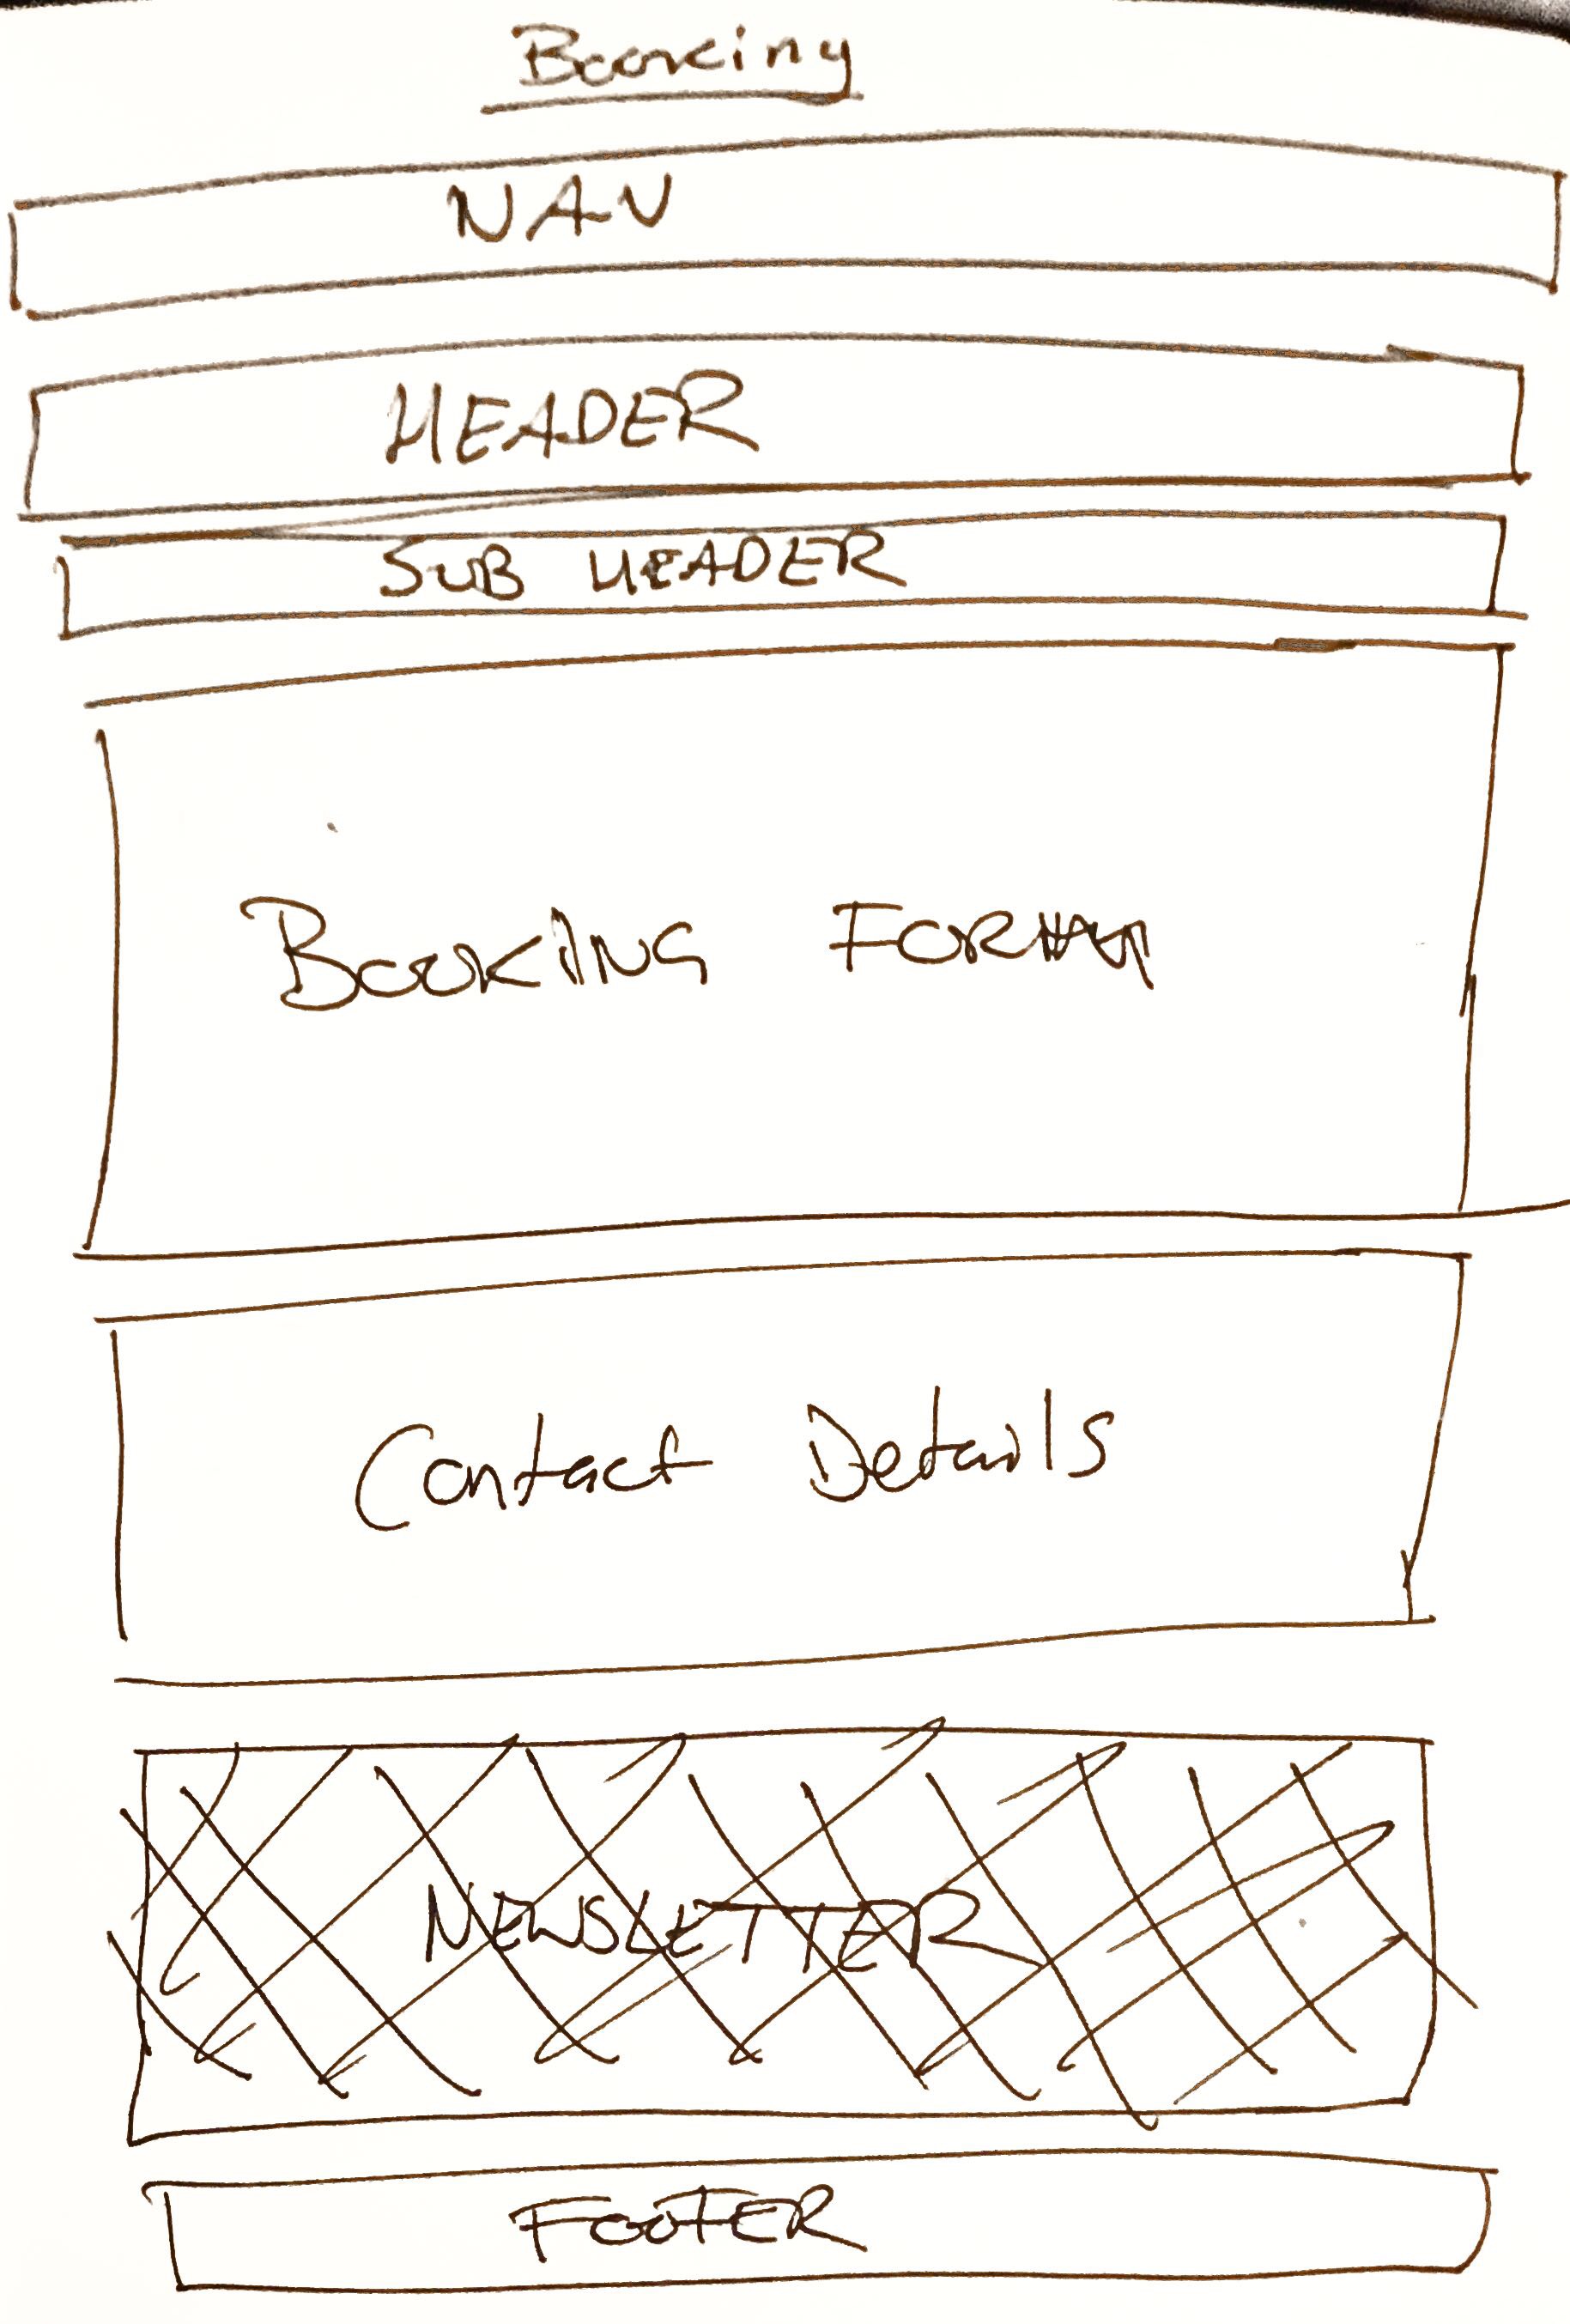 Booking
NAV
HEADER
SUB HEADER
BOOKING FORM
Contact Details
NEWSLETTER
FOOTER